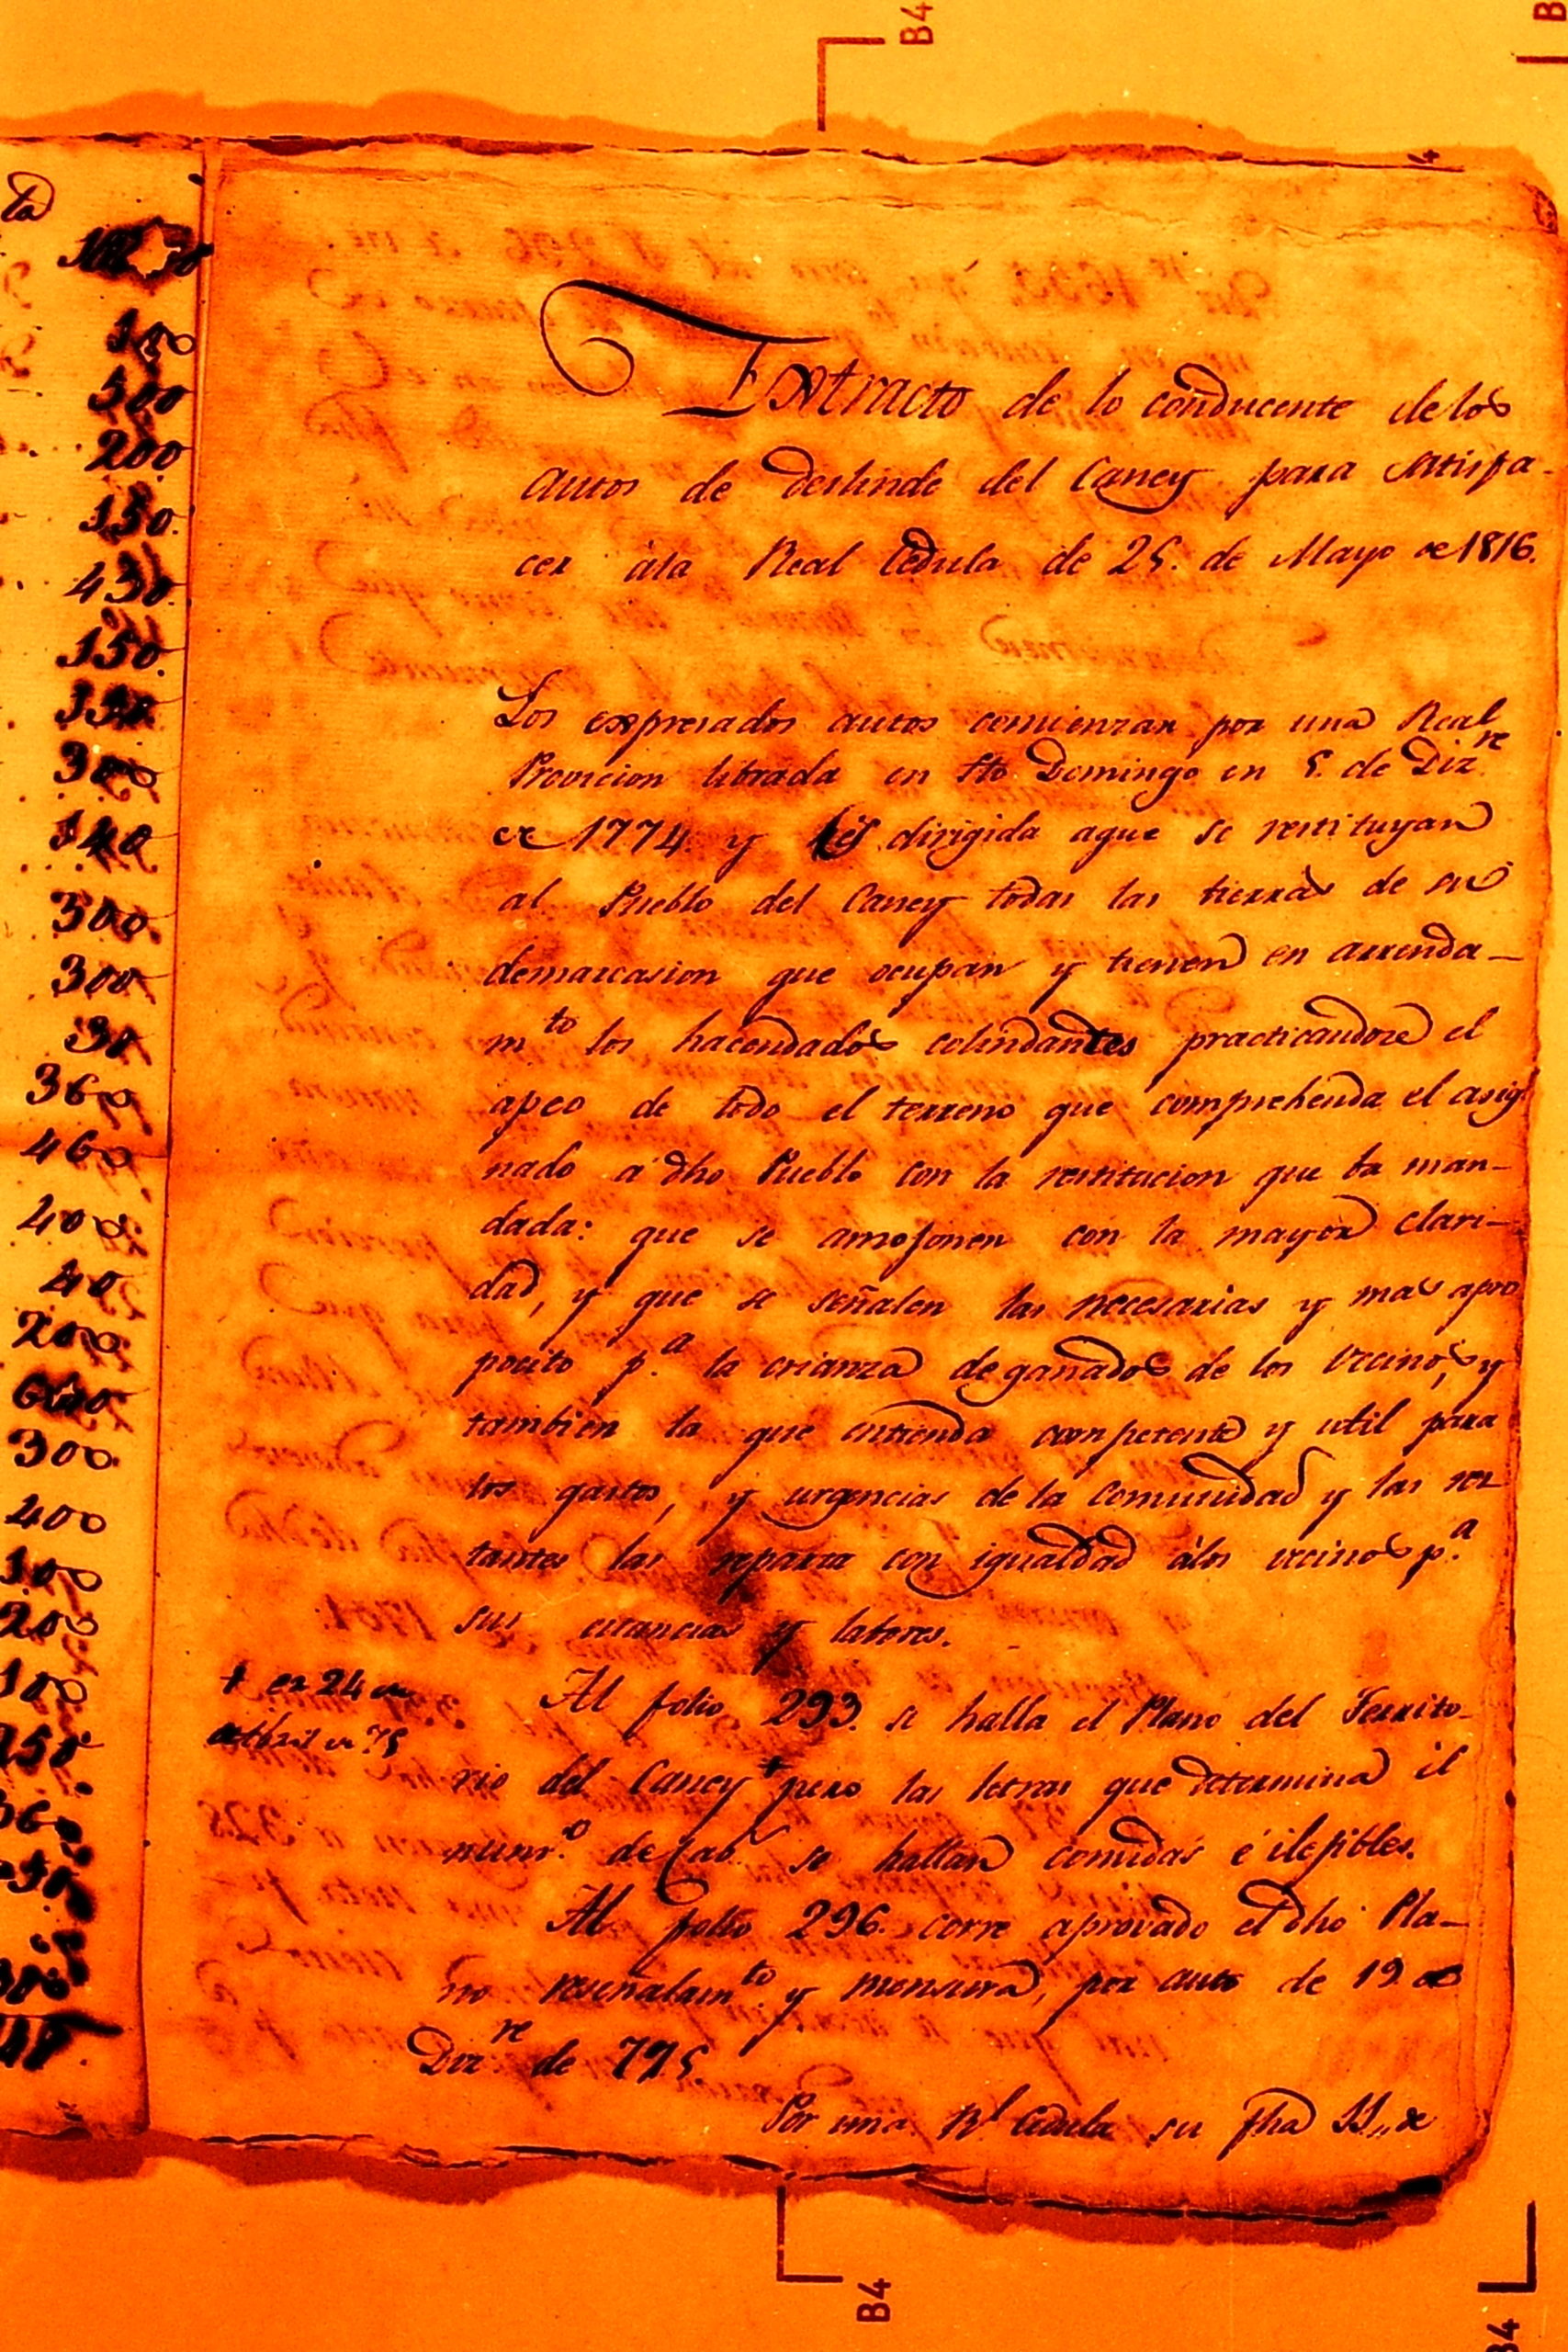 B4
ta
150
500
200
150.
430.
150.
300
140
300.
300
30
360
460
400
40
200
600
300
400
100
200
100
4
Extracto de lo conducente delos
autos de deslinde del Caney para satisfa-
cer àla Real Cedula de 25. de Mayo de 1816.
Los expresados autos comienzan por una Real
Provicion librada en Sto. Domingo en 5. de Dizre
de 1774 y es dirigida aque se restituyan
al Pueblo del Caney todas las tierras de su
demarcasion que ocupan y tienen en arrenda-
mto los hacendados colindantes practicandose el
apeo de todo el terreno que comprehenda el asig
nado á dho Pueblo con la restitucion que ba man-
dada: que se amojonen con la mayor clari-
dad, y que se señalen las necesarias y mas apro
pocito p.a la crianza de ganados de los vecinos, y
tambien la que entienda competente y util para
los gastos, y urgencias de la Comunidad y las res
tantes las reparta con igualdad àlos vecinos p.a
sus estancias y labores.
+ en 24 de
Abril de 75
Al folio 293. se halla el Plano del Territo-
rio del Caney + pero las letras que determina el
numr.o de Cab.s se hallan comidas é ilejibles.
Al folio 296. corre aprovado el dho Pla-
no reseñalamto. y mensura, por auto de 19 de
Dizre de 775
Por una Rl Cedula su fha 11,, de
B4
B4